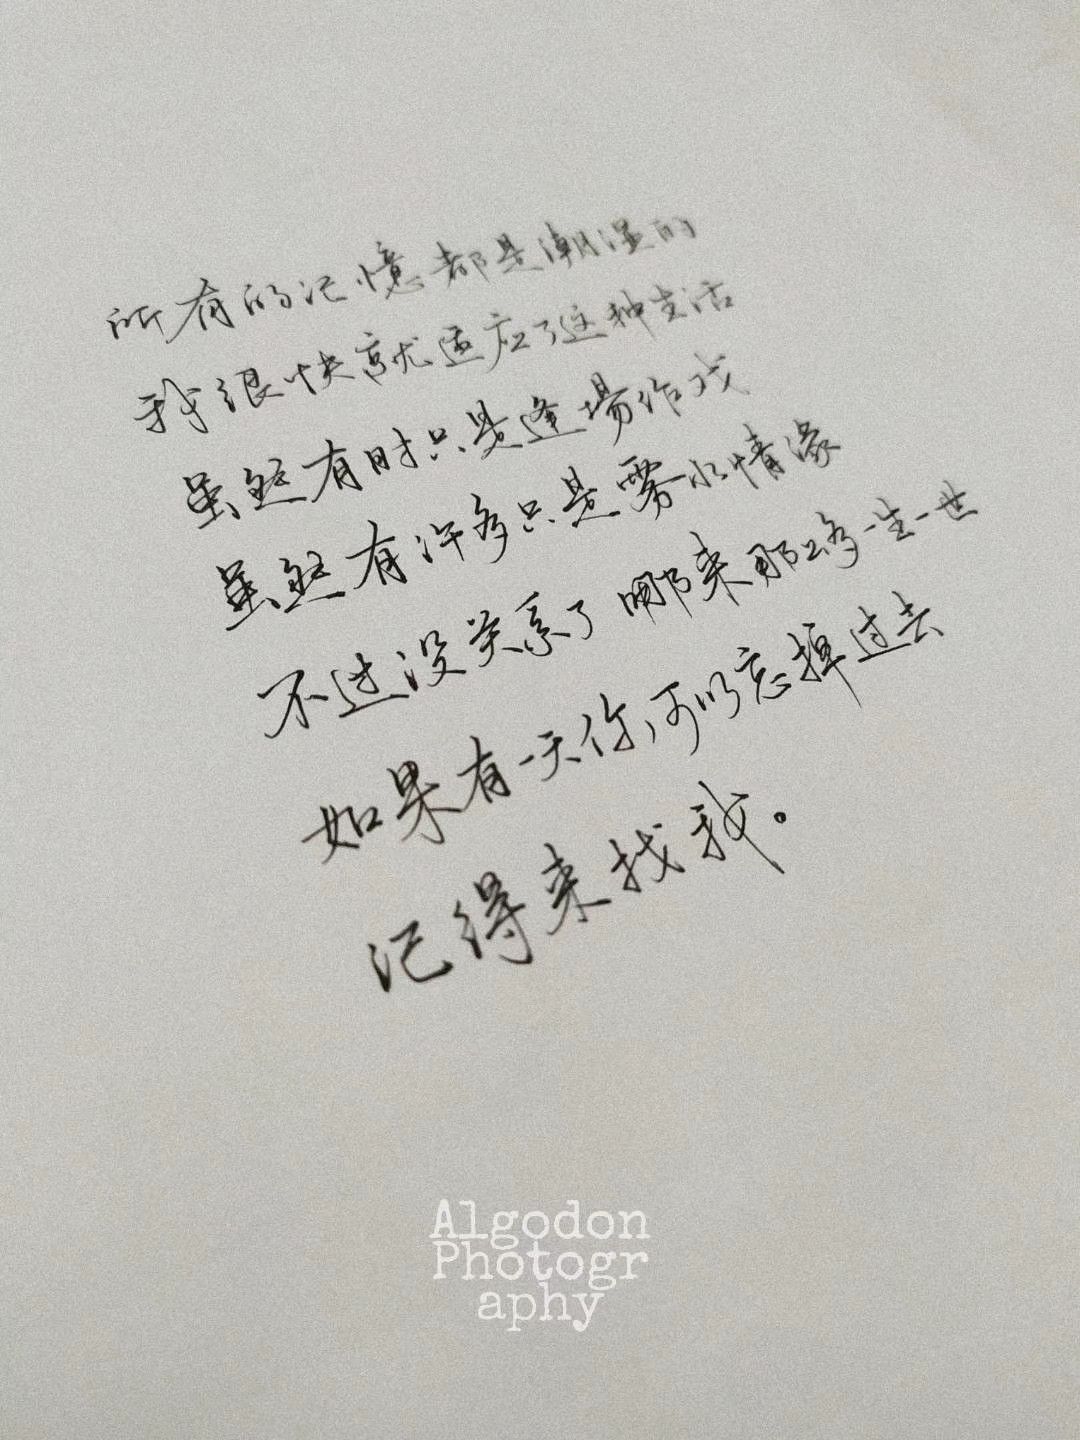 所有的记憶都是潮湿的
我很快就适应了这种生活
虽然有时只是逢場作戏
虽然有许多只是雾水情缘
不过没关系了 哪来那么多一生一世
如果有一天你可以忘掉过去
记得来找我。
Algodon
Photogr
aphy